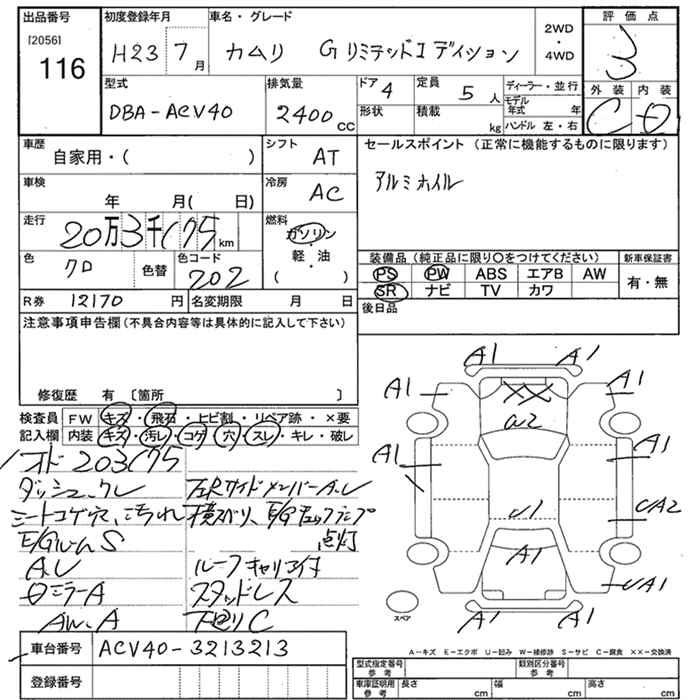 出品番号 初度登録年月 車名・グレード 2WD・4WD 評価点
[2056]
116 H23 7月 カムリ Gリミテッドエディション 3
型式 排気量 ドア 4 定員 5人 ディーラー・並行 外装 内装
DBA-ACV40 2400cc 形状 積載 kg モデル年式 年 C D
ハンドル 左・右
車歴 自家用・( ) シフト AT セールスポイント (正常に機能するものに限ります)
車検 年 月( 日) 冷房 AC アルミホイル
走行 20万3千175km 燃料 ガソリン・軽油・( )
色 クロ 色替 色コード 202
装備品 (純正品に限り○をつけてください) 新車保証書
PS PW ABS エアB AW 有・無
SR ナビ TV カワ
R券 12170円 名変期限 月 日 後日品
注意事項申告欄 (不具合内容等は具体的に記入して下さい)
修復歴 有 〔箇所 〕
検査員 FW キズ・飛石・ヒビ割・リペア跡・×要
記入欄 内装 キズ・汚レ・コゲ・穴・スレ・キレ・破レ
オド 203175
ダッシュ、クレ 左Rサイドメンバー A.U
シートコゲ穴、こすれ 横スベリ、E/Gチェックランプ
E/Gルーム S 点灯
A.U ルーフキャリア付
ミラーA スタッドレス
AW.A 下廻リC
車台番号 ACV40-3213213
登録番号
A1 A1
A1 XX A1
W2
A1 A1
U1 UA2
A1
UA1
A1 A1
スペア
A-キズ E-エクボ U-凹み W-補修跡 S-サビ C-腐食 ××-交換済
型式指定番号 参考 類別区分番号 参考
車庫証明用 参考 長さ cm 幅 cm 高さ cm